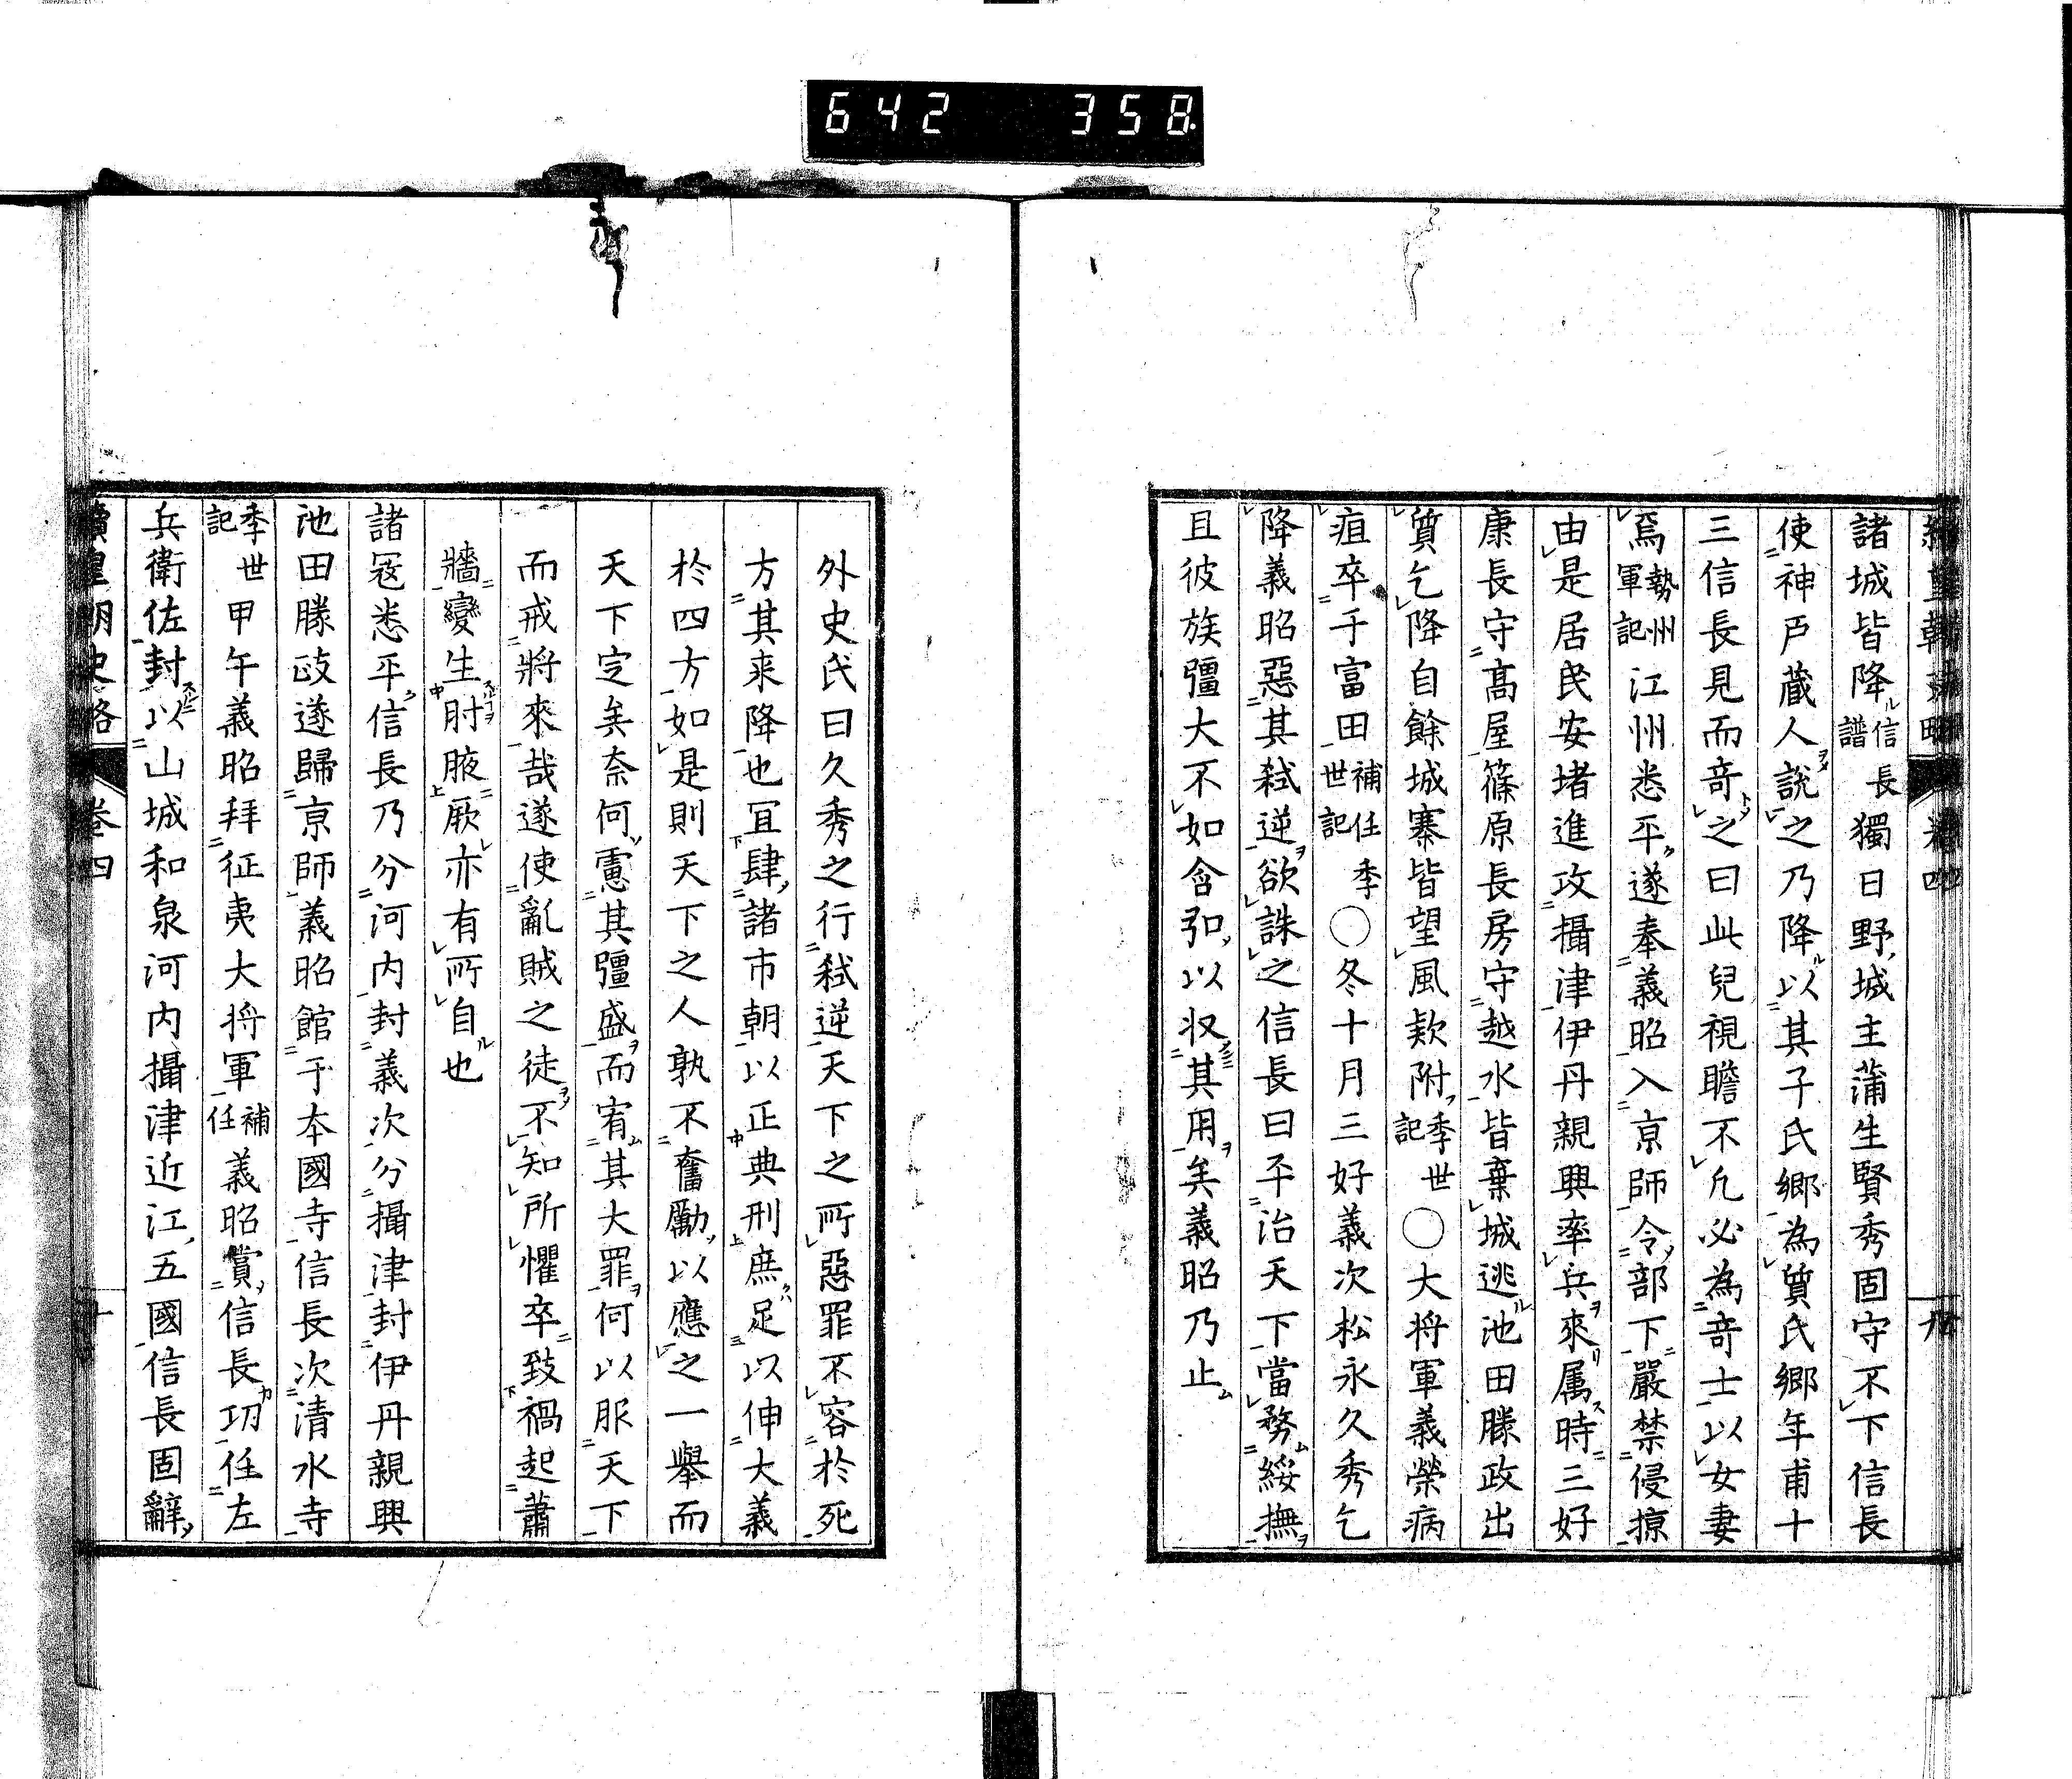 642 358
續皇朝史略 卷四 九
諸城皆降信長譜獨日野城主蒲生賢秀固守不下信長
使神戸蔵人說之乃降以其子氏郷為質氏郷年甫十
三信長見而竒之曰此兒視瞻不凡必為竒士以女妻
焉勢州軍記江州悉平遂奉義昭入亰師令部下嚴禁侵掠
由是居民安堵進攻攝津伊丹親興率兵來属時三好
康長守髙屋篠原長房守越水皆棄城逃池田勝政出
質乞降自餘城寨皆望風欵附季世記〇大将軍義榮病
疽卒于富田補任季世記〇冬十月三好義次松永久秀乞
降義昭惡其弑逆欲誅之信長曰平治天下當務綏撫
且彼族彊大不如含弘以収其用矣義昭乃止
外史氏曰久秀之行弑逆天下之所惡罪不容於死
方其来降也冝肆諸市朝以正典刑庶足以伸大義
於四方如是則天下之人孰不奮勵以應之一擧而
天下定矣奈何憲其彊盛而宥其大罪何以服天下
而戒將來哉遂使亂賊之徒不知所懼卒致禍起蕭
牆變生肘腋厥亦有所自也
諸冦悉平信長乃分河内封義次分攝津封伊丹親興
池田勝政遂歸亰師義昭館于本國寺信長次清水寺
季世記甲午義昭拜征夷大将軍補任義昭賞信長功任左
兵衛佐封以山城和泉河内攝津近江五國信長固辭
續皇朝史略 卷四 十